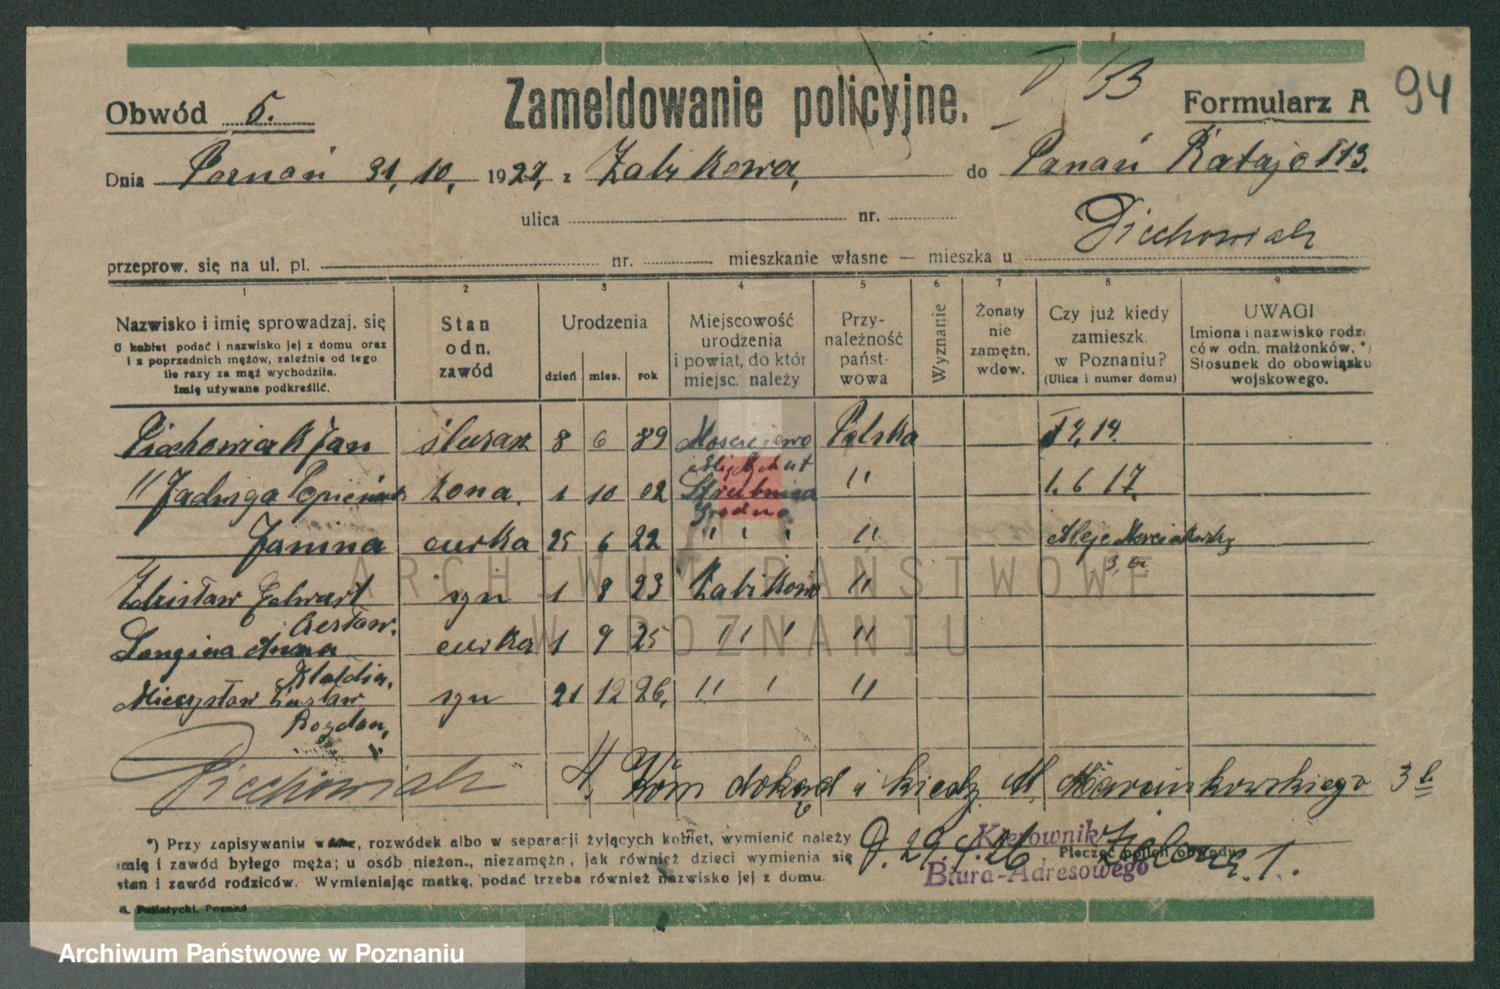 Zameldowanie policyjne.
V/53
Formularz A
94
Obwód 5.
Dnia Poznań 31, 10, 1922, z Żabikowa, do Poznań Rataje 113.
ulica nr.
Piechowiak
przeprow. się na ul. pl. nr. mieszkanie własne — mieszka u
1 2 3 4 5 6 7 8 9
Nazwisko i imię sprowadzaj. się
U kobiet podać i nazwisko jej z domu oraz
i z poprzednich mężów, zależnie od tego
ile razy za mąż wychodziła.
Imię używane podkreślić.
Stan
odn.
zawód
Urodzenia
dzień mies. rok
Miejscowość
urodzenia
i powiat, do któr
miejsc. należy
Przy-
należność
państ-
wowa
Wyznanie
Żonaty
nie
zamężn.
wdow.
Czy już kiedy
zamieszk.
w Poznaniu?
(Ulica i numer domu)
UWAGI
Imiona i nazwisko rodzi
ców odn. małżonków. *)
Stosunek do obowiązku
wojskowego.
Piechowiak Jan ślusarz 8 6 89 Mościejewo Polska 14.
Międzychód
" Jadwiga żona. 1 10 02 " 1. 6 17.
Grodno
Janina curka 25 6 22 " " " " Aleje Marcinkowsky
3,
Zdzisław Edwart syn 1 8 23 Żabikowo "
Czesław.
Longina Anna curka 1 9 25 " " "
Klaldia.
Mieczysław Lusław syn 21 12 26, " " "
Bogdan,
Piechowiak dokąd i kiedy Al. Marcinkowskiego 3
*) Przy zapisywaniu wdów, rozwódek albo w separacji żyjących kobiet, wymienić należy
imię i zawód byłego męża; u osób nieżon., niezamężn, jak również dzieci wymienia się
stan i zawód rodziców. Wymieniając matkę, podać trzeba również nazwisko jej z domu.
Kierownik
Pieczęć obwodu
Biura-Adresowego
Poznań
ARCHIWUM PAŃSTWOWE
W POZNANIU
Archiwum Państwowe w Poznaniu